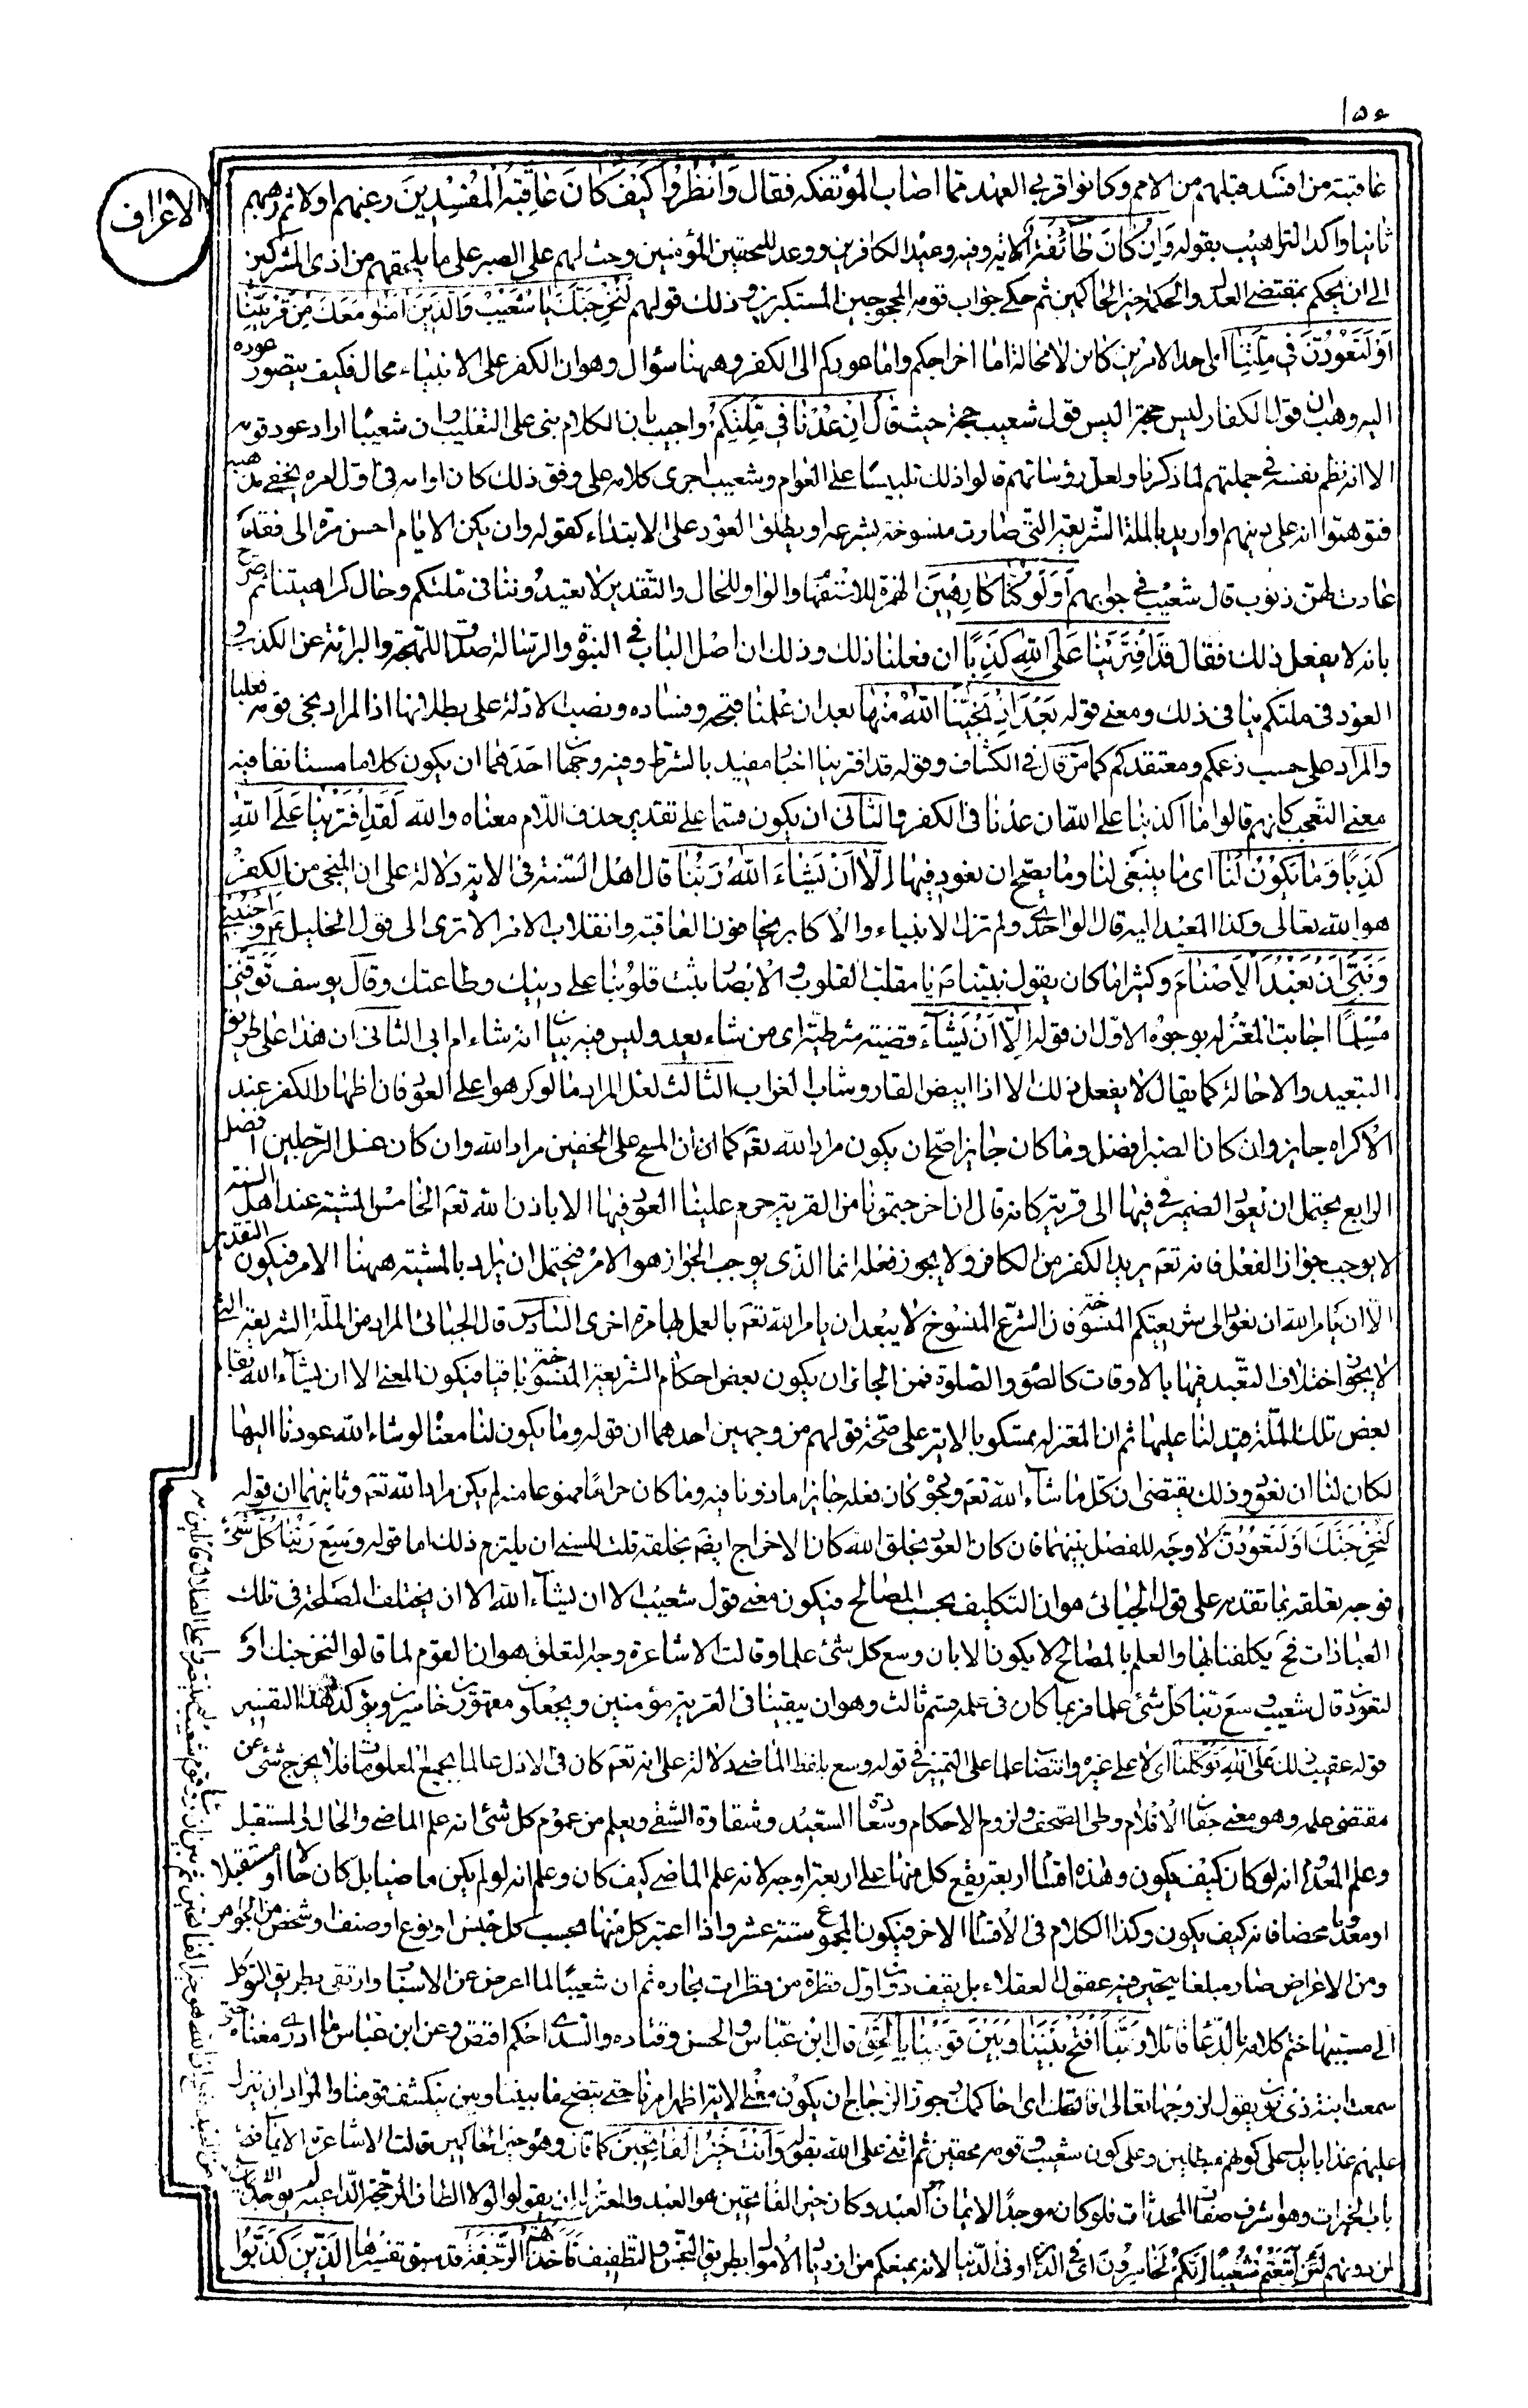 ١٥٤
الاعراف
عاقبة من افسد قبلهم من الامم وكانوا قريبي العهد مما اصاب المؤتفكه فقال وَانْظُرُوا كَيْفَ كَانَ عَاقِبَةُ الْمُفْسِدِينَ رغبهم اولا ثم رهبهم
ثانيا واكد الترهيب بقوله وَاِنْ كَانَ طَائِفَةٌ الاية وفيه وعيد الكافرين ووعد للمحقين المؤمنين وحث لهم على الصبر على ما يلحقهم من اذى المشركين
الى ان يحكم بمقتضى العدل والحكمة خير الحاكمين ثم حكى جواب قومه المحجوجين المستكبرين وذلك قولهم لَنُخْرِجَنَّكَ يَا شُعَيْبُ وَالَّذِينَ اٰمَنُوا مَعَكَ مِنْ قَرْيَتِنَا
اَوْ لَتَعُودُنَّ فِي مِلَّتِنَا اى احد الامرين كائن لا محالة اما اخراجكم واما عودكم الى الكفر وههنا سؤال وهو ان الكفر على الانبياء محال فكيف يتصور عوده
اليه وهب ان قول الكفار ليس حجة اليس قول شعيب حجة حيث قال اِنْ عُدْنَا فِي مِلَّتِكُمْ واجيب بان الكلام بنى على التغليب وان شعيبا اراد عود قومه
الا انه نظم نفسه في جملتهم لما ذكرنا ولعل رؤساءهم قالوا ذلك تلبيسا على العوام وشعيب اجرى كلامه على وفق ذلك كان اوانه فى اول امره يخفى مذهبه
فتوهموا انه على دينهم او اريد بالملة الشريعة التى صارت منسوخة بشرعه او يطلق العود على الابتداء كقوله وان يكن الايام احسن مرة الى فقد
عادت لهن ذنوب قال شعيب في جوابهم اَوَلَوْ كُنَّا كَارِهِينَ الهمزة للاستفهام والواو للحال والتقدير لا تعيدوننا فى ملتكم وحال كراهيتنا ثم صرح
بانه لا يفعل ذلك فقال قَدِ افْتَرَيْنَا عَلَى اللّٰهِ كَذِبًا ان فعلنا ذلك وذلك ان اصل الباب فى النبوة والرسالة صدق اللهجة والبراءة عن الكذب و
العود فى ملتكم ينافى ذلك ومعنى قوله بَعْدَ اِذْ نَجّٰينَا اللّٰهُ مِنْهَا بعد ان علمنا قبحه وفساده ونصب الادلة على بطلانها اذا المراد نجى قومه فغلبا
والمراد على حسب زعمكم ومعتقدكم كما مر قال فى الكشاف وقوله قد افترينا اخبار مقيد بالشرط وفيه وجهان احدهما ان يكون كلاما مستانفا فيه
معنى التعجب كانهم قالوا ما اكذبنا على الله ان عدنا فى الكفر والثانى ان يكون قسما على تقدير حذف اللام معناه والله لَقَدِ افْتَرَيْنَا عَلَى اللّٰهِ
كَذِبًا وَمَا يَكُونُ لَنَا اى ما ينبغى لنا وما يصح ان نعود فيها اِلَّا اَنْ يَشَاءَ اللّٰهُ رَبُّنَا قال اهل السنة فى الاية دلالة على ان المنجى من الكفر
هو الله تعالى وكذا المعيد اليه قال الواحدى ولم تزل الانبياء والاكابر يخافون العاقبة وانقلاب الامر الا ترى الى قول الخليل ع واجنبنى
وَبَنِيَّ اَنْ نَعْبُدَ الْاَصْنَامَ وكثيرا ما كان يقول نبينا ص يا مقلب القلوب والابصار ثبت قلوبنا على دينك وطاعتك وقال يوسف تَوَفَّنِي
مُسْلِمًا اجابت المعتزلة بوجوه الاول ان قوله اِلَّا اَنْ يَشَاءَ قضية شرطية اى من شاء يعد وليس فيه بيان انه شاء ام ابى الثانى ان هذا على طريق
التبعيد والاحالة كما يقال لا يفعل ذلك الا اذا ابيض القار وشاب الغراب الثالث لعل المراد ما لو كرهوا على العود فان اظهار الكفر عند
الاكراه جايز وان كان الصبر افضل وما كان جايزا صح ان يكون مراد الله تعم كما ان المسح على الخفين مراد الله وان كان غسل الرجلين افضل
الرابع يحتمل ان يعود الضمير فى فيها الى قرية كانه قال ان اخرجتمونا من القرية حرم علينا العود فيها الا باذن الله تعم الخامس المشية عند اهل السنة
لا يوجب جواز الفعل فانه تعم يريد الكفر من الكافر ولا يجوز فعله انما الذى يوجب الجواز هو الامر فيحتمل ان يراد بالمشية ههنا الامر فيكون التقدير
الا ان يامر الله ان نعود الى شريعتكم المنسوخة فان الشرع المنسوخ لا يبعد ان يامر الله تعم بالعمل بها مرة اخرى السادس قال الجبائى المراد من الملة الشريعة التى
لا يجوز اختلاف التعبد فيها بالاوقات كالصوم والصلوة فمن الجائز ان يكون بعض احكام الشريعة المنسوخة باقيا فيكون المعنى الا ان يشاء الله بقاء
بعض تلك الملة فيدلنا عليها ثم ان المعتزلة تمسكوا بالاية على صحة قولهم من وجهين احدهما ان قوله وما يكون لنا معناه لو شاء الله عودنا اليها
لكان لنا ان نعود وذلك يقتضى ان كل ما شاء الله تعم وجوده كان فعله جايزا ماذونا فيه وما كان حراما ممنوعا منه لم يكن مراد الله تعم وثانيهما ان قوله
لَنُخْرِجَنَّكَ اَوْ لَتَعُودُنَّ لا وجه للفصل بينهما فان كان العود بخلق الله كان الاخراج ايضا بخلقه قلت للسنى ان يلتزم ذلك اما قوله وَسِعَ رَبُّنَا كُلَّ شَيْءٍ
فوجه تعلقه بما تقدم على قول الجبائى هو ان التكاليف بحسب المصالح فيكون معنى قول شعيب الا ان يشاء الله الا ان يختلف المصلحة فى تلك
العبادات فح يكلفنا بها والعلم بالمصالح لا يكون الا بان وسع كل شئ علما وقالت الاشاعرة وجه التعلق هو ان القوم لما قالوا لنخرجنك او
لتعودن قال شعيب وسع ربنا كل شئ علما فربما كان فى علمه قسم ثالث وهو ان يبقينا فى القرية مؤمنين ويجعلكم مقهورين خاسرين ويؤكد هذا التفسير
قوله عقيب ذلك عَلَى اللّٰهِ تَوَكَّلْنَا اى لا على غيره وانتصاب علما على التميز فى قوله وسع بلفظ الماضى دلالة على انه تعم كان فى الازل عالما بجميع المعلومات فلا يخرج شئ عن
مقتضى علمه وهو معنى جفاف الاقلام وطى الصحف ولزوم الاحكام وسعادة السعيد وشقاوة الشقى ويعلم من عموم كل شئ انه علم الماضى والحال والمستقبل
وعلم المعدوم انه لو كان كيف يكون وهذه اقسام اربعة يقع كل منها على اربعة اوجه لانه علم الماضى كيف كان وعلم انه لو لم يكن ماضيا بل كان حالا او مستقبلا
او معدوما محضا فانه كيف يكون وكذا الكلام فى الاقسام الاخر فيكون المجموع ستة عشر واذا اعتبر كل منها بحسب كل جنس او نوع او صنف او شخص من الجواهر
ومن الاعراض صار مبلغا يتحير فيه عقول العقلاء بل يقف دون اول قطرة من قطرات بحاره ثم ان شعيبا لما اعرض عن الاسباب وارتقى بطريق التوكل
الى مسببها ختم كلامه بالدعاء قائلا رَبَّنَا افْتَحْ بَيْنَنَا وَبَيْنَ قَوْمِنَا بِالْحَقِّ قال ابن عباس والحسن وقتاده والسدى احكم واقض وعن ابن عباس ما ادرى معناه حتى
سمعت ابنة ذى يزن يقول لزوجها تعال افاتحك اى احاكمك وجوز الزجاج ان يكون معنى الاية اظهر امرنا حتى يتضح ما بيننا وبين قومنا وينكشف والمراد ان ينزل
عليهم عذابا يدل على كونهم مبطلين وعلى كون شعيب وقومه محقين ثم اثنى على الله بقوله وَاَنْتَ خَيْرُ الْفَاتِحِينَ كما قال وهو خير الحاكمين قالت الاشاعرة الايمان فتح
باب الخيرات وهو اشرف صفات المحدثات فلو كان موجد الايمان العبد لكان خير الفاتحين هو العبد وللمعتزلة ان يقولوا لولا الطافه المرجحة الداعية لم يوجد
لمن دونهم لَئِنِ اتَّبَعْتُمْ شُعَيْبًا اِنَّكُمْ لَخَاسِرُونَ اى فى الدين او فى الدنيا لانه يمنعكم من ازدياد الاموال بطريق البخس والتطفيف فَاَخَذَتْهُمُ الرَّجْفَةُ قد سبق تفسيرها الَّذِينَ كَذَّبُوا